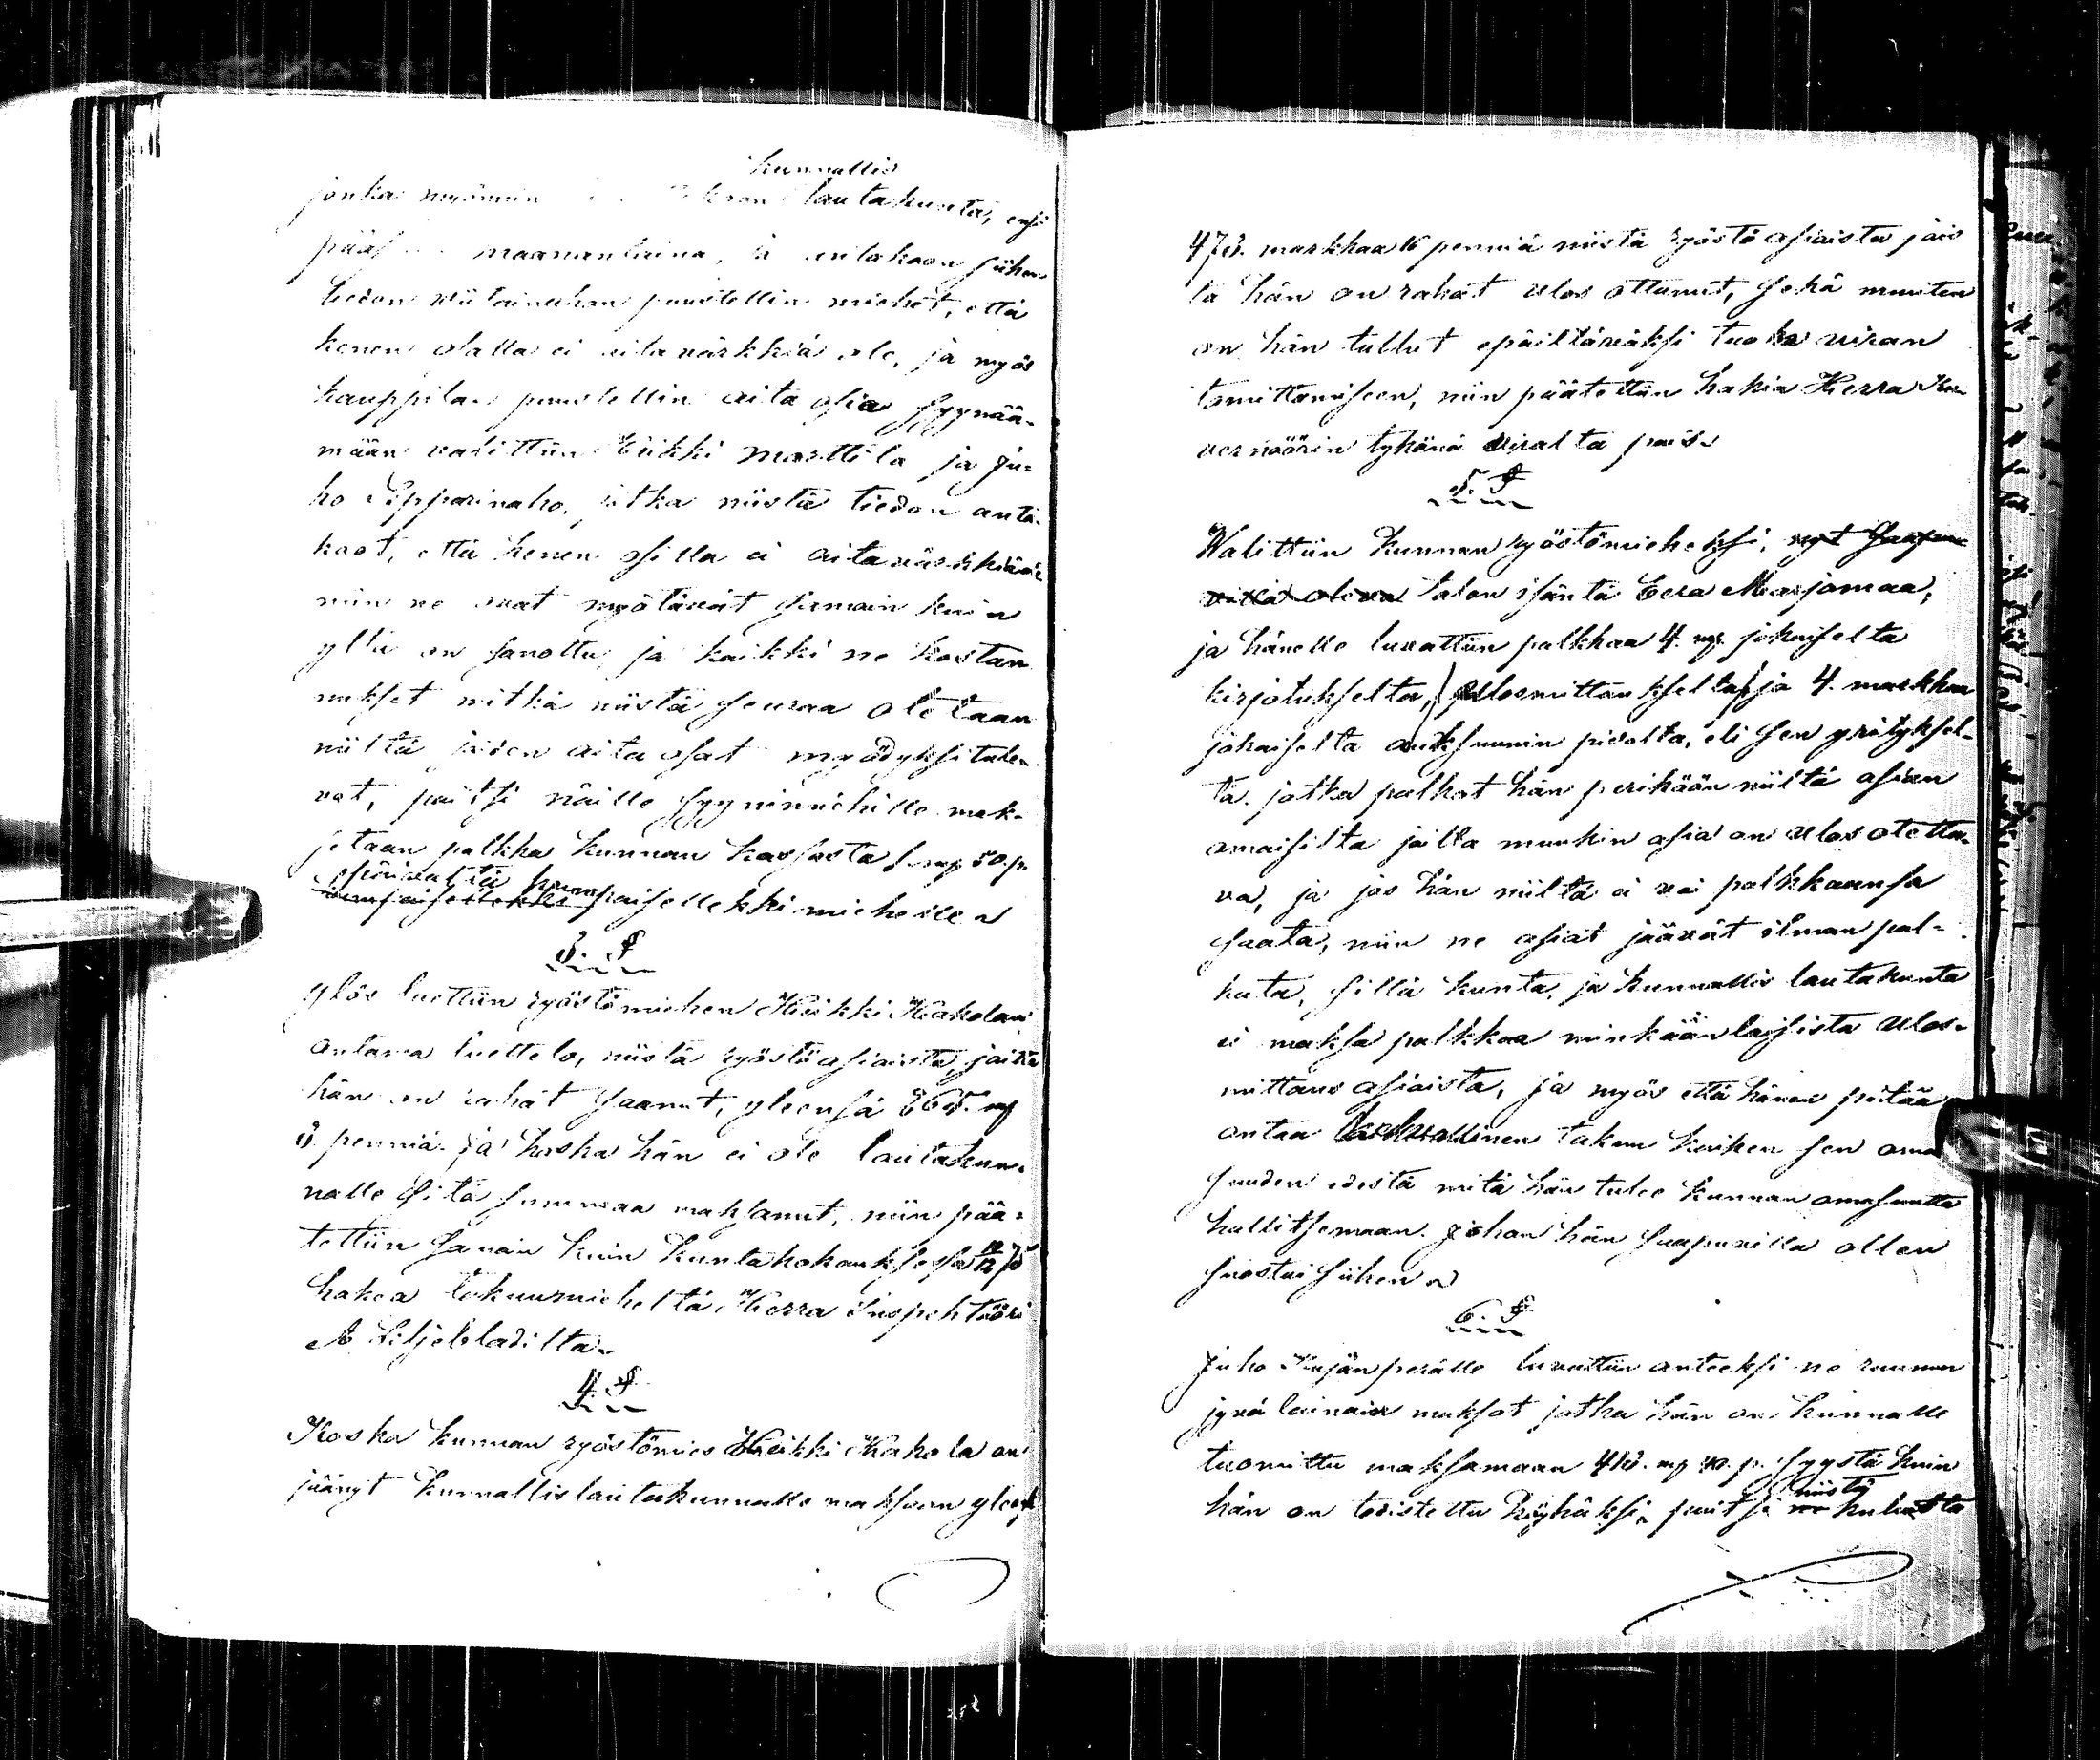 kunnallis
jonka myönnin lautakunta, ensi
maananlaina, ja antakoon siihen
tiedon puustellin miehet, että
kenen osalla ei aitavärkkiä ole, ja myös
kauppilan puustellin aita osia syynää-
mään valittiin Eiikki Marttila ja Ju-
ho Pipparinaho, jotka niistä tiedon anta-
koot, että kenen osilla ei aitavärkkiä ole
niin ne ovat myötävät samoin kuin
yllä on sanottu, ja kaikki ne kostan
nukset mitkä niistä seuraa otetaan
niiltä joiden aita osat myödyksi tule-
vat, paitsi näille syynimiehille mak-
setaan palkka kunnan kassasta 1 mg. 50. p.
päivältä kummpaisellekki miehelle
3. §
Ylös luettiin ryöstömiehen Heikki Kakolan
antama luettelo, niistä ryöstö asiaista, joista
hän on rahat saanut, yleensä 365. mg
3. penniä. ja koska hän ei ole lautakun-
nalle sitä summaa maksanut, niin pää-
tettiin samoin kuin kuntakokouksessa 10/12 75
hakea takuumieheltä Herra Inspehtööri
A Liljebladilta.
4. §
Koska kunnan ryöstömies Heikki Kakola on
jäänyt kunnallislautakunnalle maksaan yleesä
473. markkaa 16 penniä niistä ryöstö asiaista jois
ta hän on rahat ulos ottanut, sekä muuten
on hän tullut epäiltäväksi tuoho viran
tomittamiseen, niin päätettiin hakia Herra Ku-
vernöörin tykönä viralta pois.
5. §
Walittiin kunnan ryöstömieheksi, nyt
oleva talon isäntä Eera Marjamaa,
ja hänelle luvattiin palkkaa 4. mg. jokaiselta
kirjotukselta, ulosmittaukselta, ja 4. markkaa
jokaiselta auksuunin pidolta, eli sen yrityksel-
tä. jotka palkat hän perikään niiltä asian
omaisilta joilta muukin asia on ulos otetta-
va, ja jos hän niiltä ei voi palkkaansa
saata, niin ne asiat jäävät ilman pal-
kata, sillä kunta, ja kunnallis lautakunta
ei maksa palkkaa minkäänlaisista ulos-
mittaus asiaista, ja myös että hänen pitää
antaa laukvallinen takuu kaiken sen oma
suuden edestä mitä hän tulee kunnan omasuutta
hallitsemaan. Johon hän saapuvilla ollen
suostui siihen
6. §
Juho Kujanperälle luvattiin anteeksi ne ruunun
jyvä lainain maksot jotka hän on kunnalle
tuomittu maksamaan 413. mg 40. p. syystä kuin
niistä
hän on todistettu köyhäksi, paitsi ne kuluista